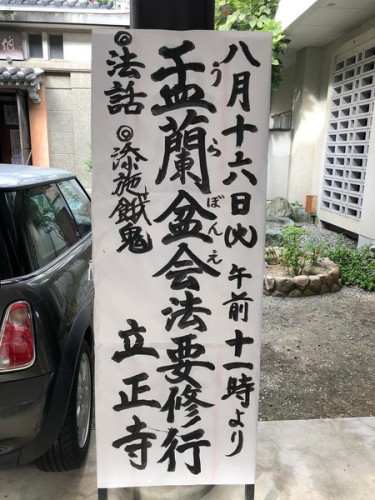 八月十六日(火)午前十一時より
盂蘭盆会法要修行
うらぼんえ
◎法話 ◎添施餓鬼
立正寺